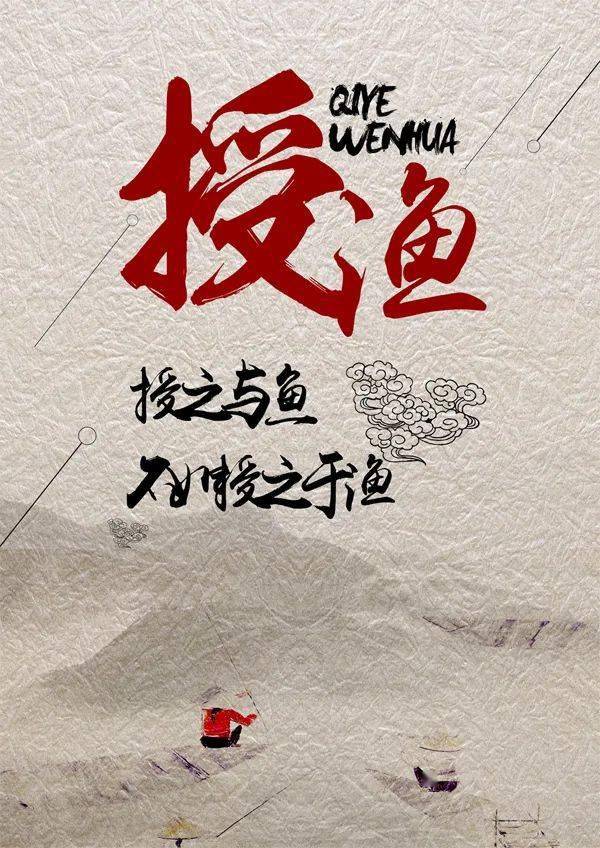 授渔
QIYE
WENHUA
授之与鱼
不如授之于渔